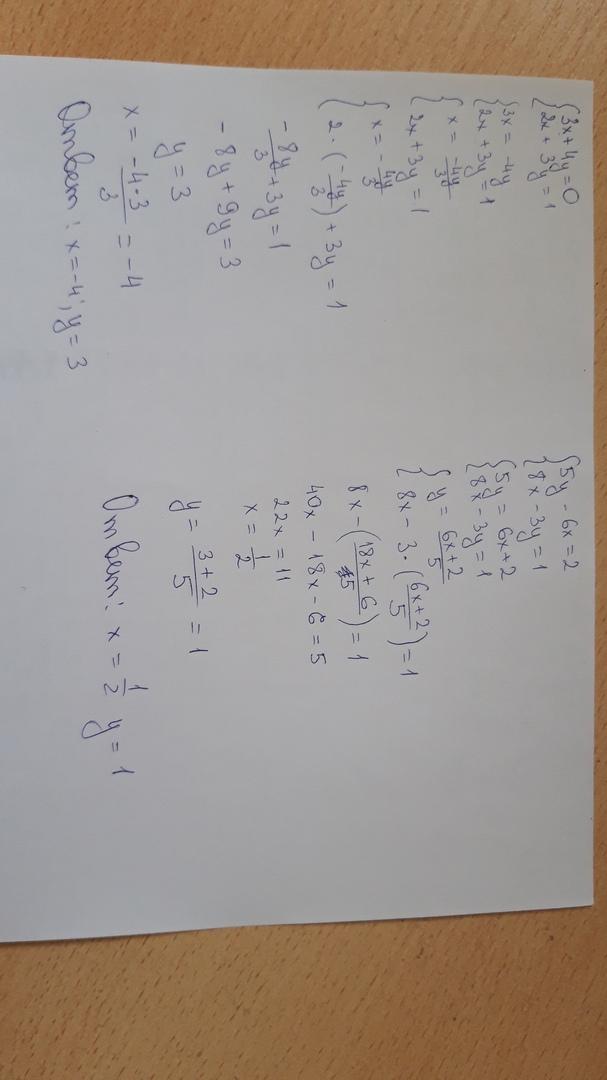 {3x+4y=0
2x+3y=1
{3x=-4y
2x+3y=1
{x=-4y/3
2x+3y=1
{x=-4y/3
2·(-4y/3)+3y=1
-8y/3+3y=1
-8y+9y=3
y=3
x=-4·3/3=-4
Ответ: x=-4; y=3
{5y-6x=2
8x-3y=1
{5y=6x+2
8x-3y=1
{y=6x+2/5
8x-3·(6x+2/5)=1
8x-(18x+6/5)=1
40x-18x-6=5
22x=11
x=1/2
y=3+2/5=1
Ответ: x=1/2 y=1